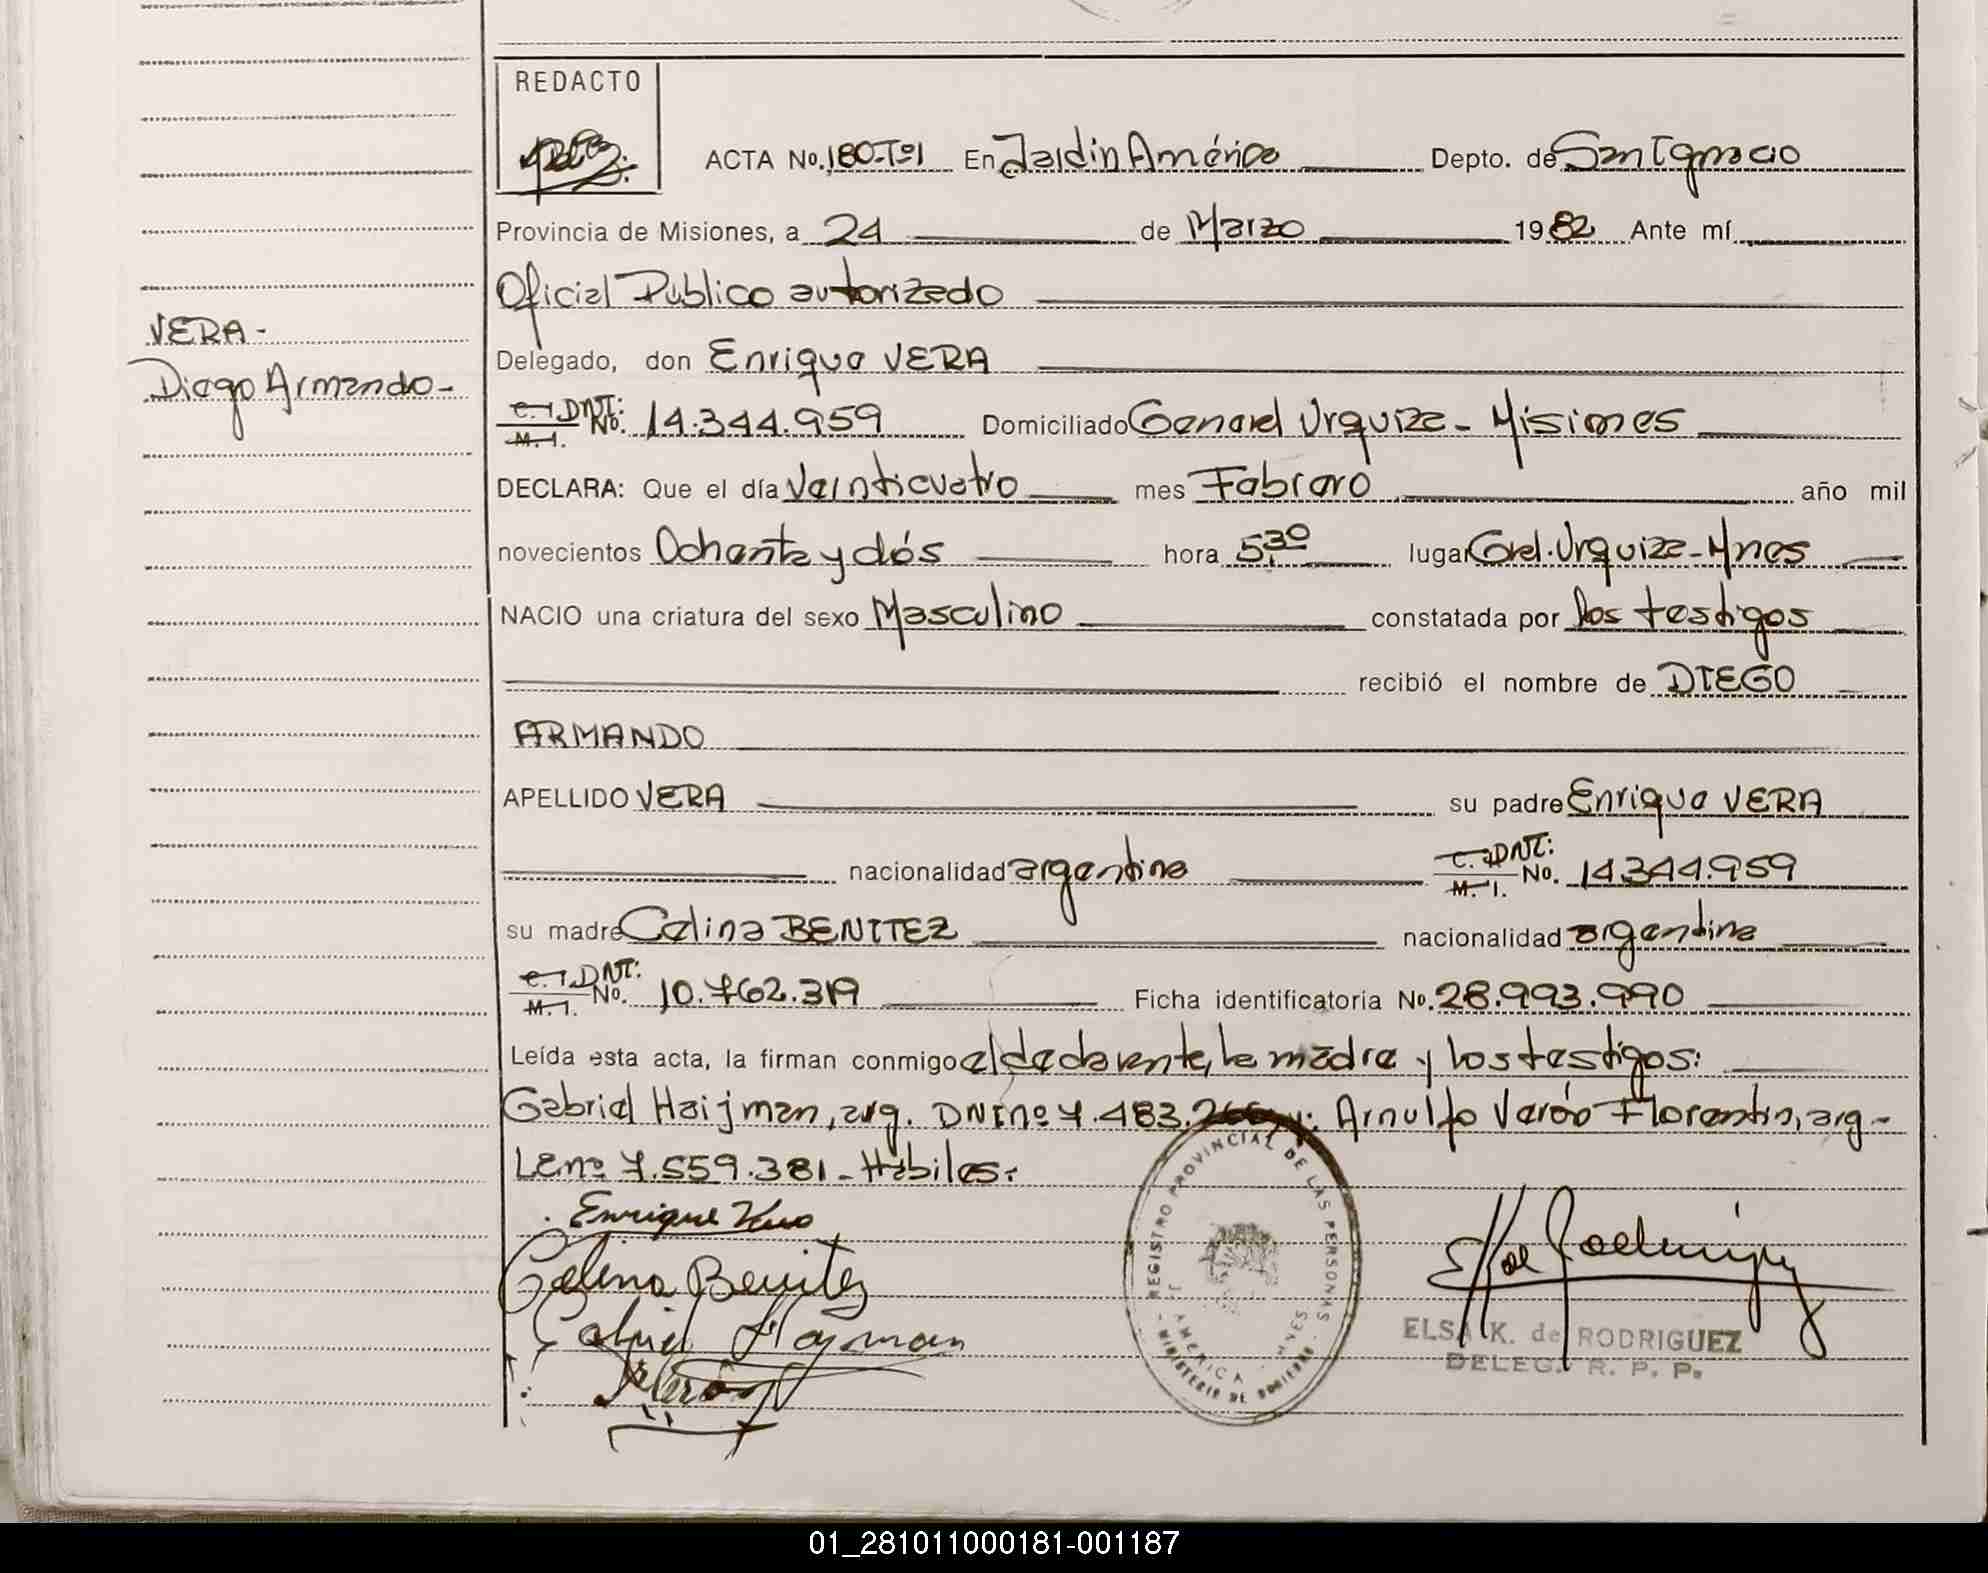 REDACTO
ACTA No. 180-Tº1 En Jardín América Depto. de San Ignacio
Provincia de Misiones, a 24 de Marzo 1982 Ante mí
Oficial Público autorizado
VERA-
Delegado, don Enrique VERA
Diego Armando-
C. I. DNI: M. I. No. 14.344.959 Domiciliado General Urquiza - Misiones
DECLARA: Que el día Veinticuatro mes Febrero año mil
novecientos Ochenta y dós hora 5,30 lugar Gral. Urquiza - Mnes
NACIO una criatura del sexo Masculino constatada por los testigos
recibió el nombre de DIEGO
ARMANDO
APELLIDO VERA su padre Enrique VERA
nacionalidad argentina C. I. DNI: M. I. No. 14.344.959
su madre Celina BENITEZ nacionalidad argentina
C. I. DNI: M. I. No. 10.762.319 Ficha identificatoria No. 28.993.990
Leída esta acta, la firman conmigo el declarante, la madre y los testigos:
Gabriel Haijman, arg. DNI nº 7.483.266 y: Arnulfo Verón Florentin, arg-
LE nº 7.559.381 - Hábiles:
Enrique Vera
Celina Benitez
Gabriel Hajman
REGISTRO PROVINCIAL DE LAS PERSONAS
J. AMERICA - MNES
MINISTERIO DE GOBIERNO
ELSA K. de RODRIGUEZ
DELEG. R. P. P.
01_281011000181-001187